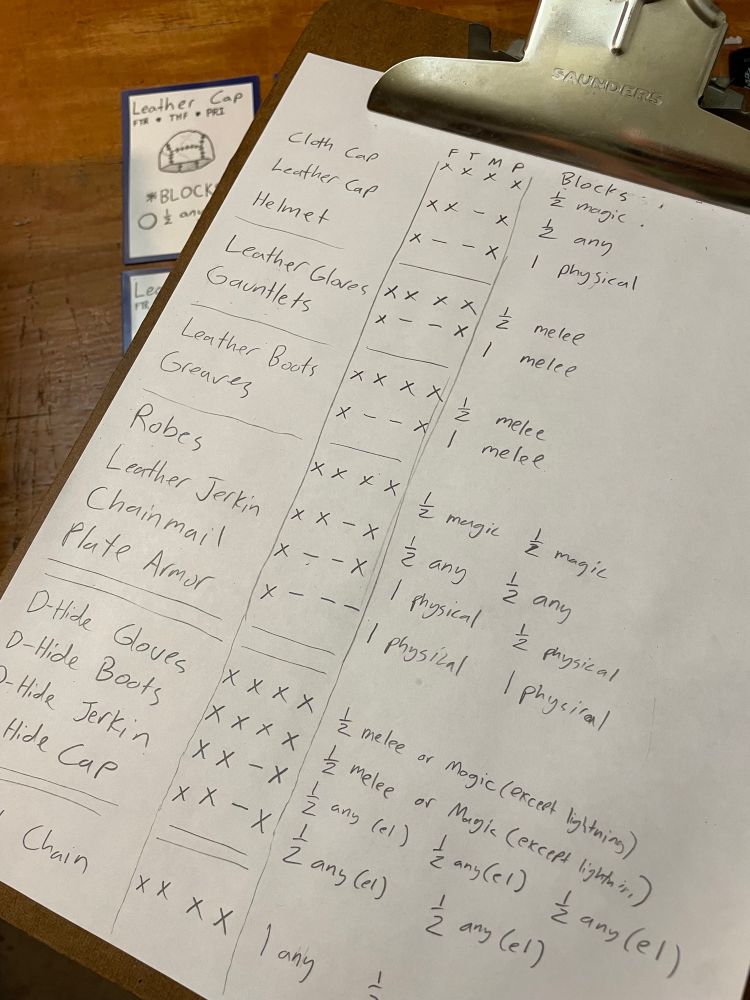 SAUNDERS
Leather Cap
FTR • THF • PRI
*BLOCK
½ any
Lea
FTR
F T M P Blocks:
Cloth Cap x x x x ½ magic
Leather Cap x x - x ½ any
Helmet x - - x 1 physical
Leather Gloves x x x x ½ melee
Gauntlets x - - x 1 melee
Leather Boots x x x x ½ melee
Greaves x - - x 1 melee
Robes x x x x ½ magic ½ magic
Leather Jerkin x x - x ½ any ½ any
Chainmail x - - x 1 physical ½ physical
Plate Armor x - - - 1 physical 1 physical
D-Hide Gloves x x x x ½ melee or Magic (except lightning)
D-Hide Boots x x x x ½ melee or Magic (except lightnin
D-Hide Jerkin x x - x ½ any (el) ½ any (el) ½ any (el)
Hide Cap x x - x ½ any (el) ½ any (el)
Chain x x x x 1 any ½